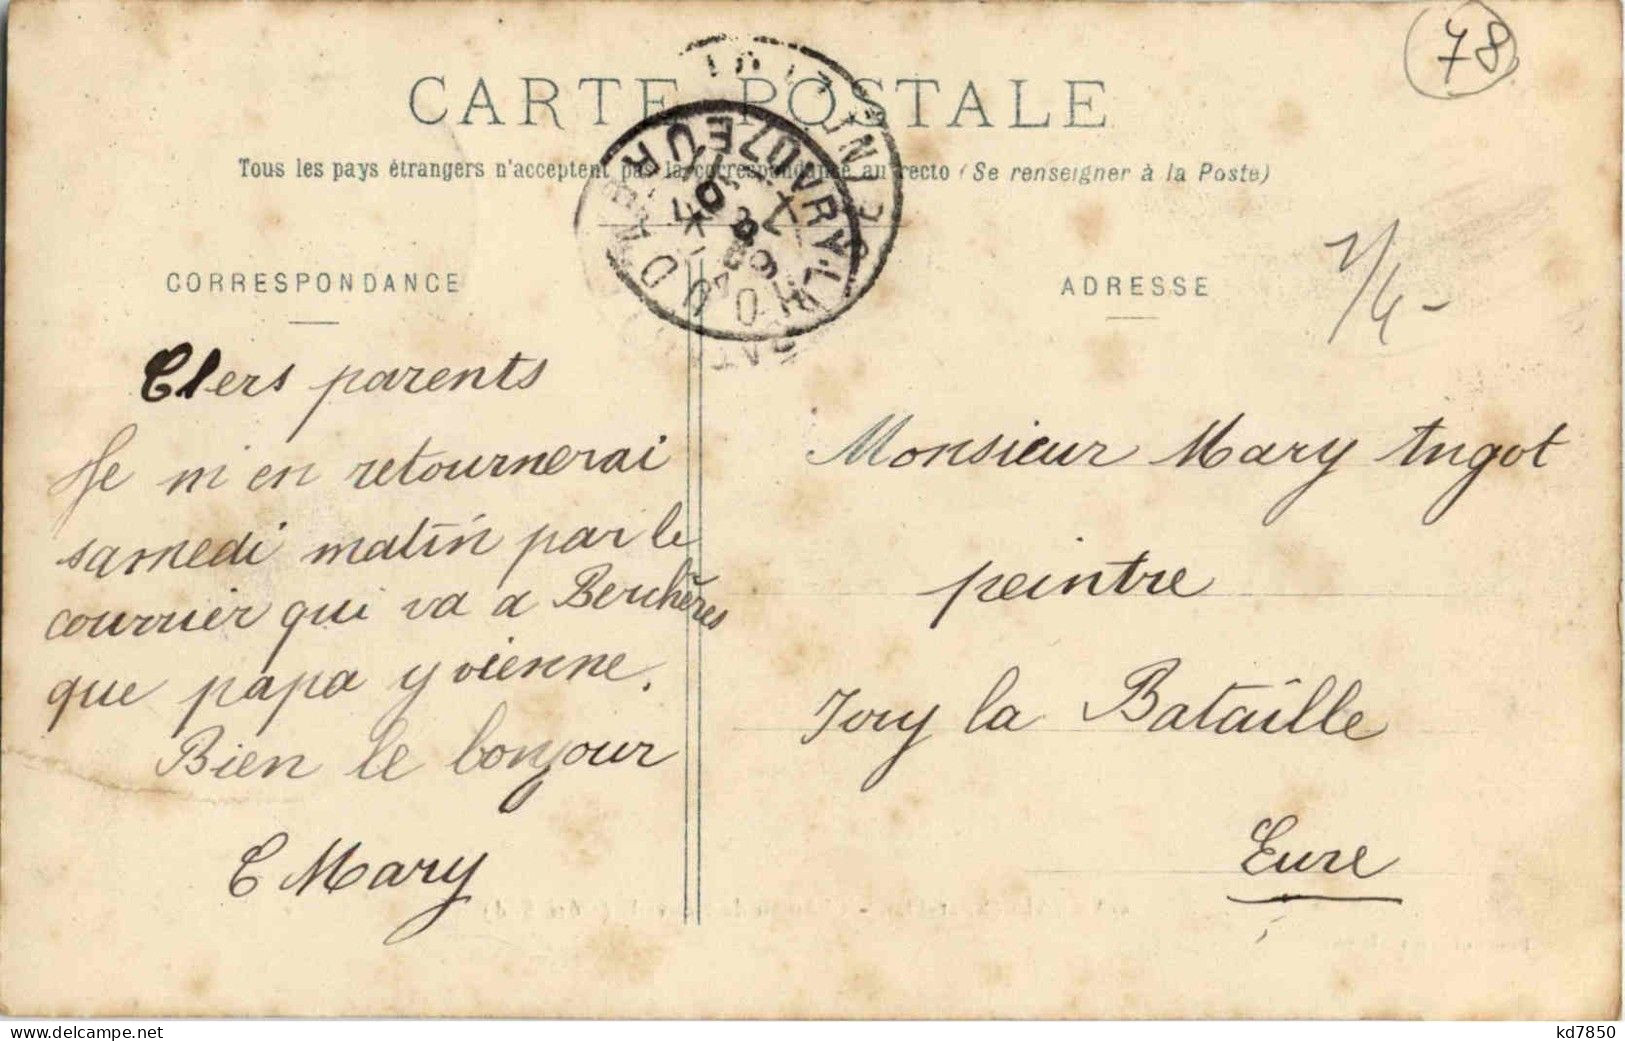 78
CARTE POSTALE
Tous les pays étrangers n'acceptent pas la correspondance au recto (Se renseigner à la Poste)
CORRESPONDANCE
ADRESSE
Chers parents
Je m'en retournerai
samedi matin par le
courrier qui va a Berchères
que papa y vienne.
Bien le bonjour
E Mary
Monsieur Mary Angot
peintre
Ivry la Bataille
Eure
www.delcampe.net
kd7850